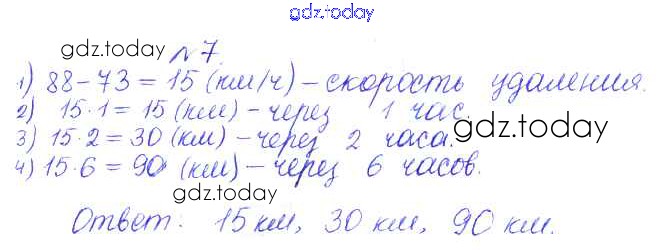 gdz.today
gdz.today №7.
1) 88-73=15 (км/ч) - скорость удаления.
2) 15·1=15 (км) - через 1 час.
gdz.today
3) 15·2=30 (км) - через 2 часа.
4) 15·6=90 (км) - через 6 часов.
gdz.today
Ответ: 15 км, 30 км, 90 км.